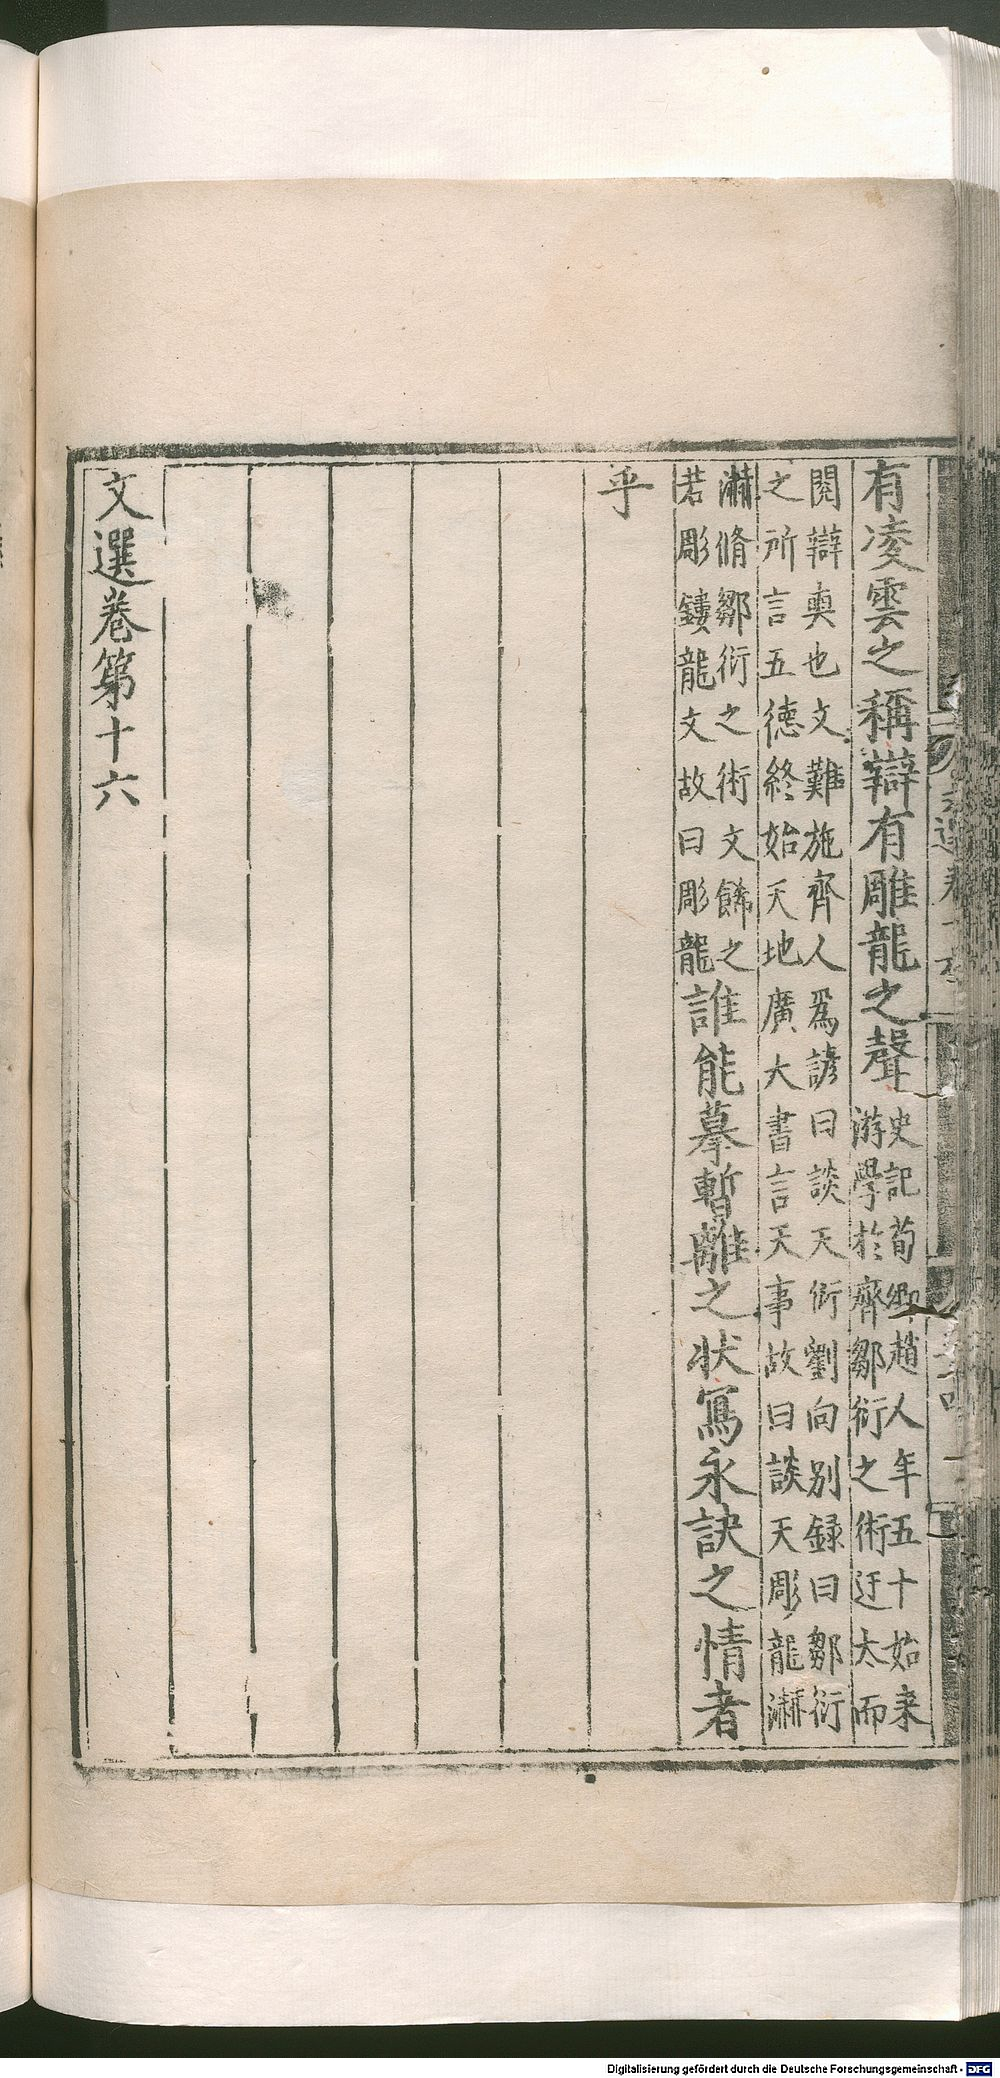 有凌雲之稱辯有雕龍之聲史記荀卿趙人年五十始来
游學於齊鄒衍之術迂大而
閎辯奭也文難施齊人為諺曰談天衍劉向别録曰鄒衍
之所言五德終始天地廣大書言天事故曰談天彫龍𣿉
𣿉脩鄒衍之術文餙之
若彫鏤龍文故曰彫龍誰能摹暫離之狀寫永訣之情者
乎
文選卷第十六
Digitalisierung gefördert durch die Deutsche Forschungsgemeinschaft - DFG